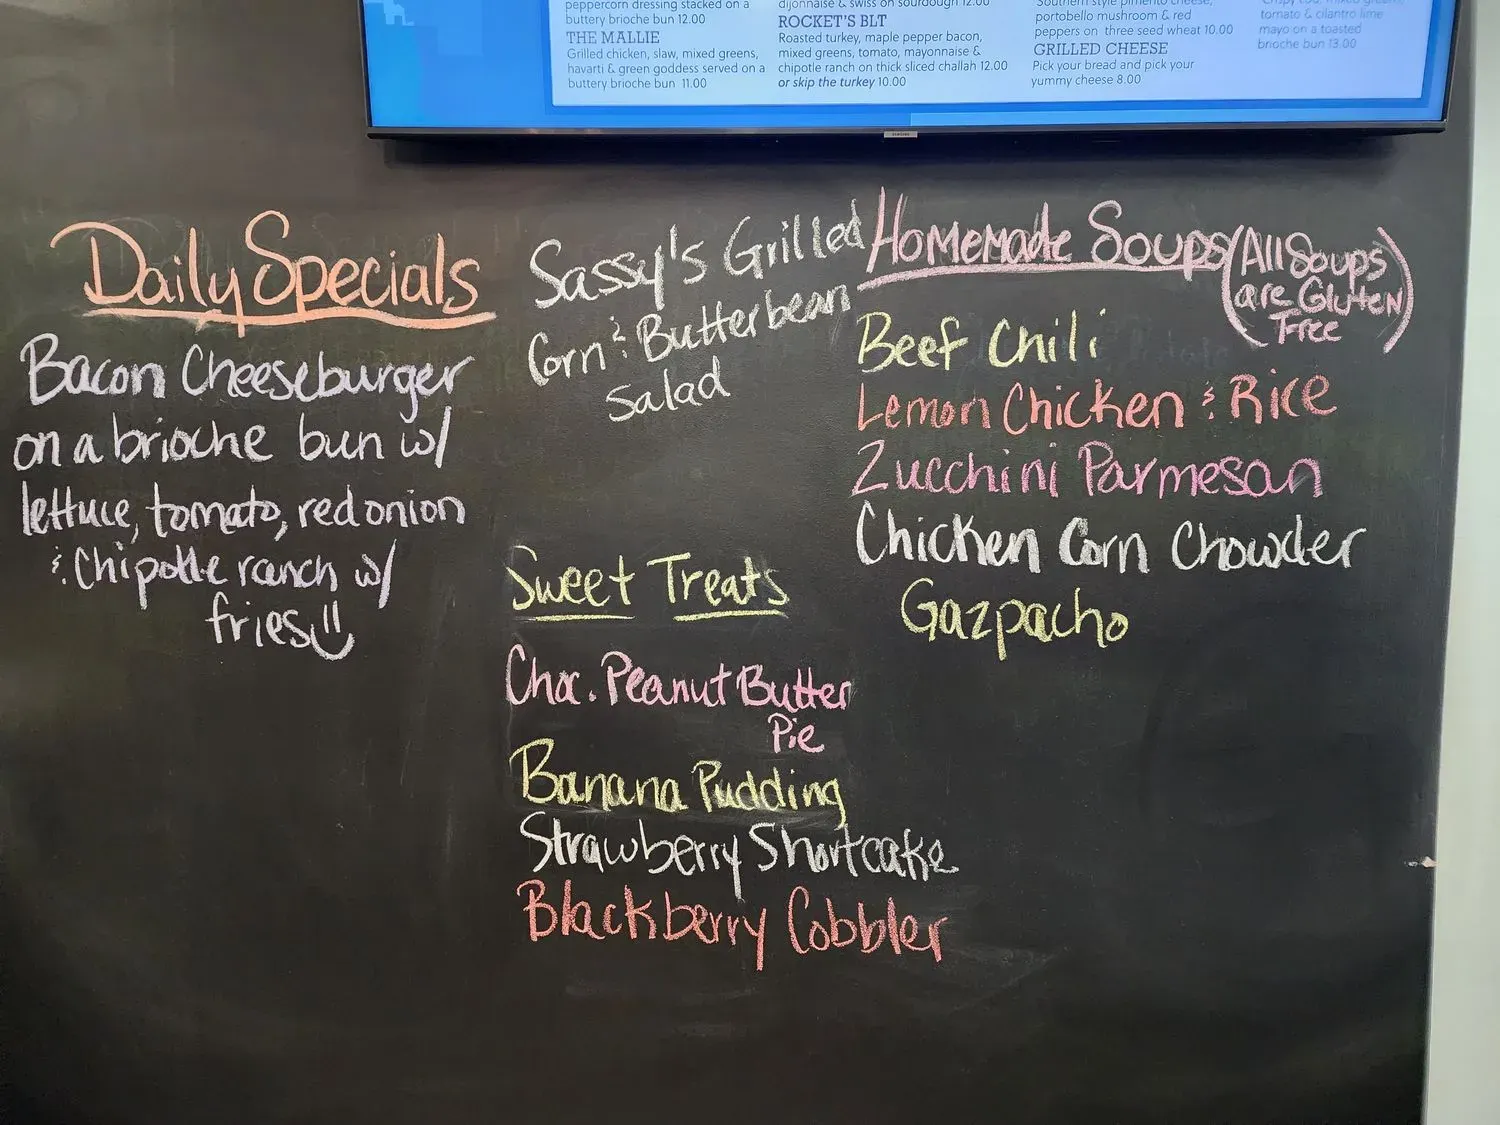 peppercorn dressing stacked on a
buttery brioche bun 12.00
THE MALLIE
Grilled chicken, slaw, mixed greens,
havarti & green goddess served on a
buttery brioche bun 11.00
dijonnaise & swiss on sourdough 12.00
ROCKET'S BLT
Roasted turkey, maple pepper bacon,
mixed greens, tomato, mayonnaise &
chipotle ranch on thick sliced challah 12.00
or skip the turkey 10.00
Southern style pimento cheese,
portobello mushroom & red
peppers on three seed wheat 10.00
GRILLED CHEESE
Pick your bread and pick your
yummy cheese 8.00
Crispy cod, mixed greens,
tomato & cilantro lime
mayo on a toasted
brioche bun 13.00
Daily Specials
Bacon Cheeseburger
on a brioche bun w/
lettuce, tomato, red onion
& Chipotle ranch w/
fries
Sassy's Grilled
Corn & Butterbean
Salad
Sweet Treats
Choc. Peanut Butter
Pie
Banana Pudding
Strawberry Shortcake
Blackberry Cobbler
Homemade Soups (All Soups
are Gluten
Free)
Beef Chili
Lemon Chicken & Rice
Zucchini Parmesan
Chicken Corn Chowder
Gazpacho